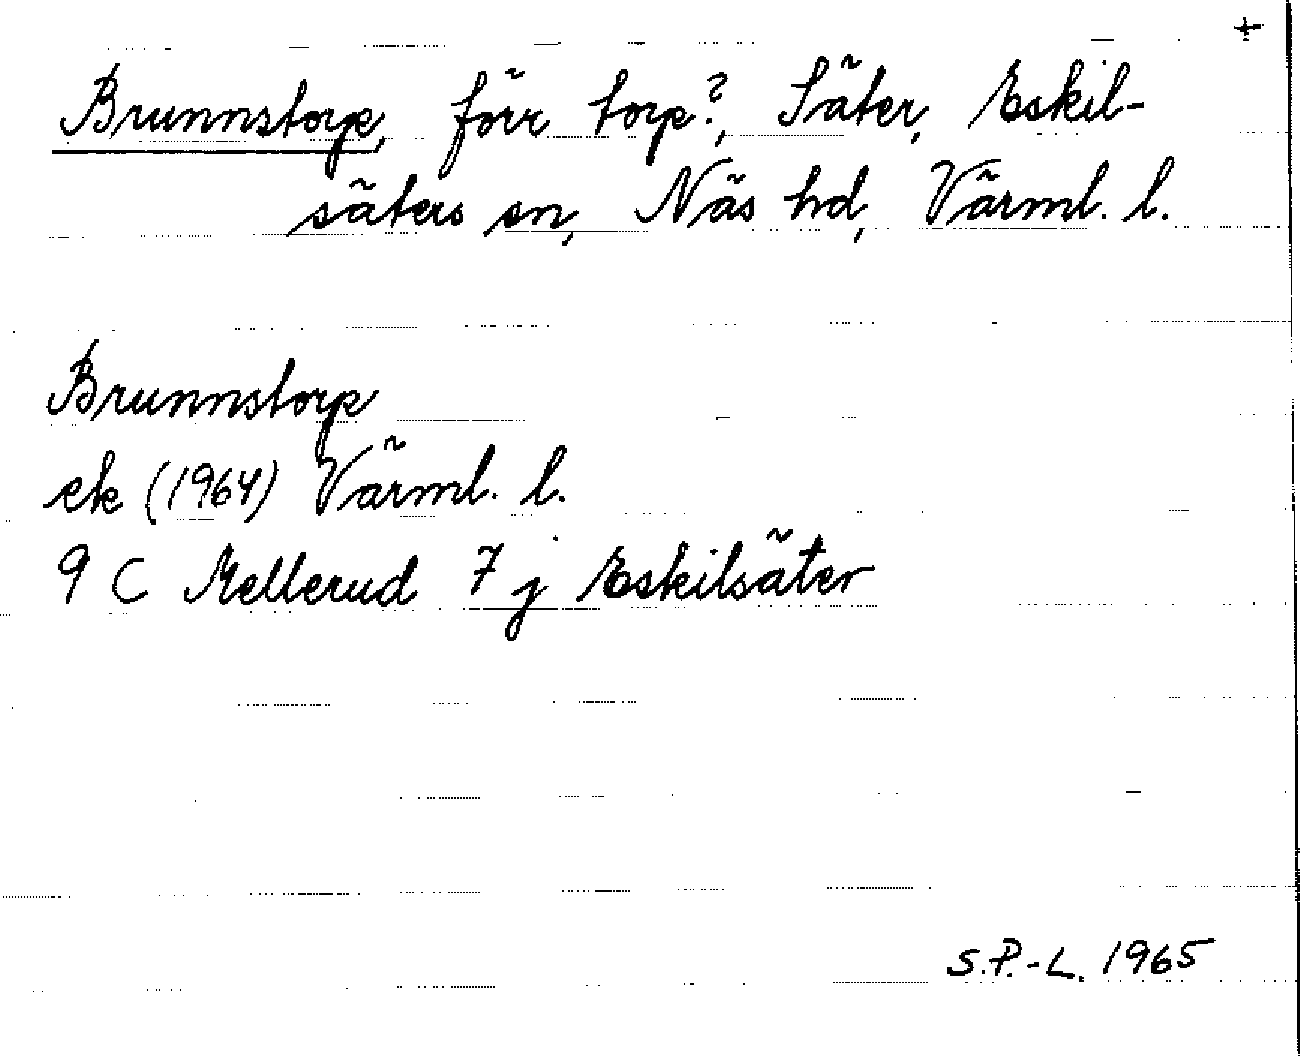 +
Brunnstorp, förr torp?, Säter, Eskil-
säters sn, Näs hd, Värml. l.
Brunnstorp
ek (1964) Värml. l.
9 C Mellerud 7 j Eskilsäter
S.P.-L. 1965